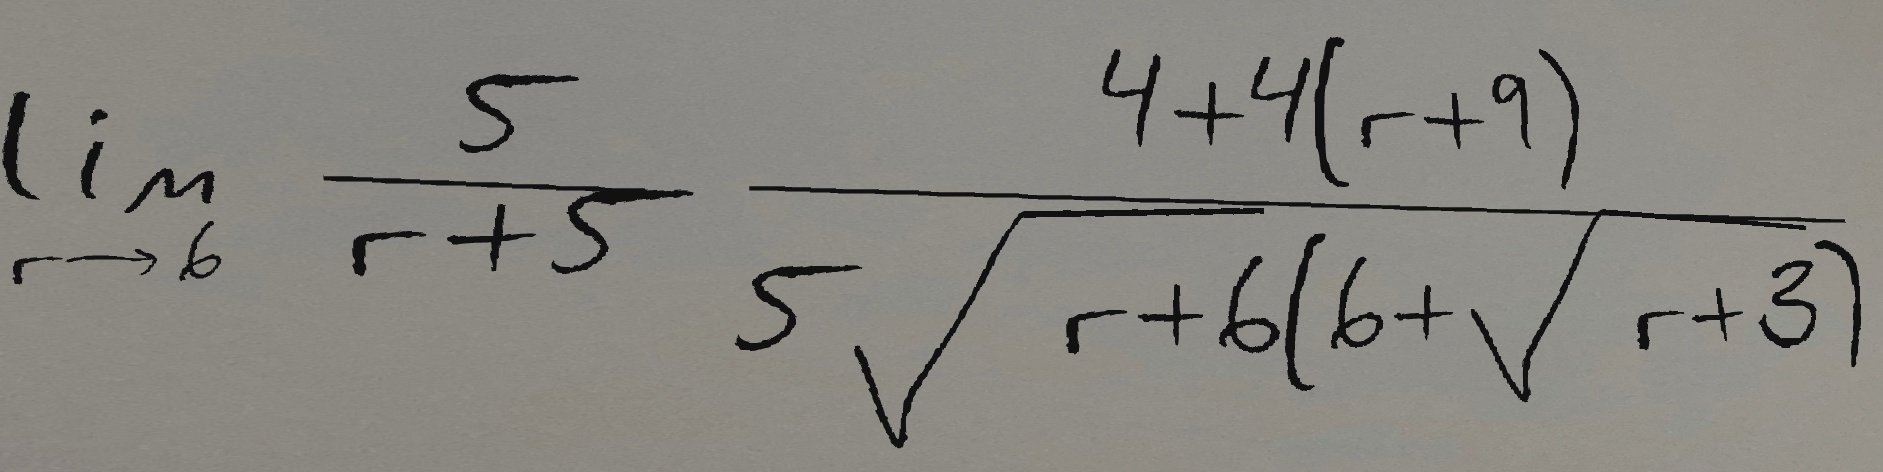 \lim_{r \to 6} \frac{5}{r+5} \frac{4+4(r+9)}{5\sqrt{r+6}(6+\sqrt{r+3})}